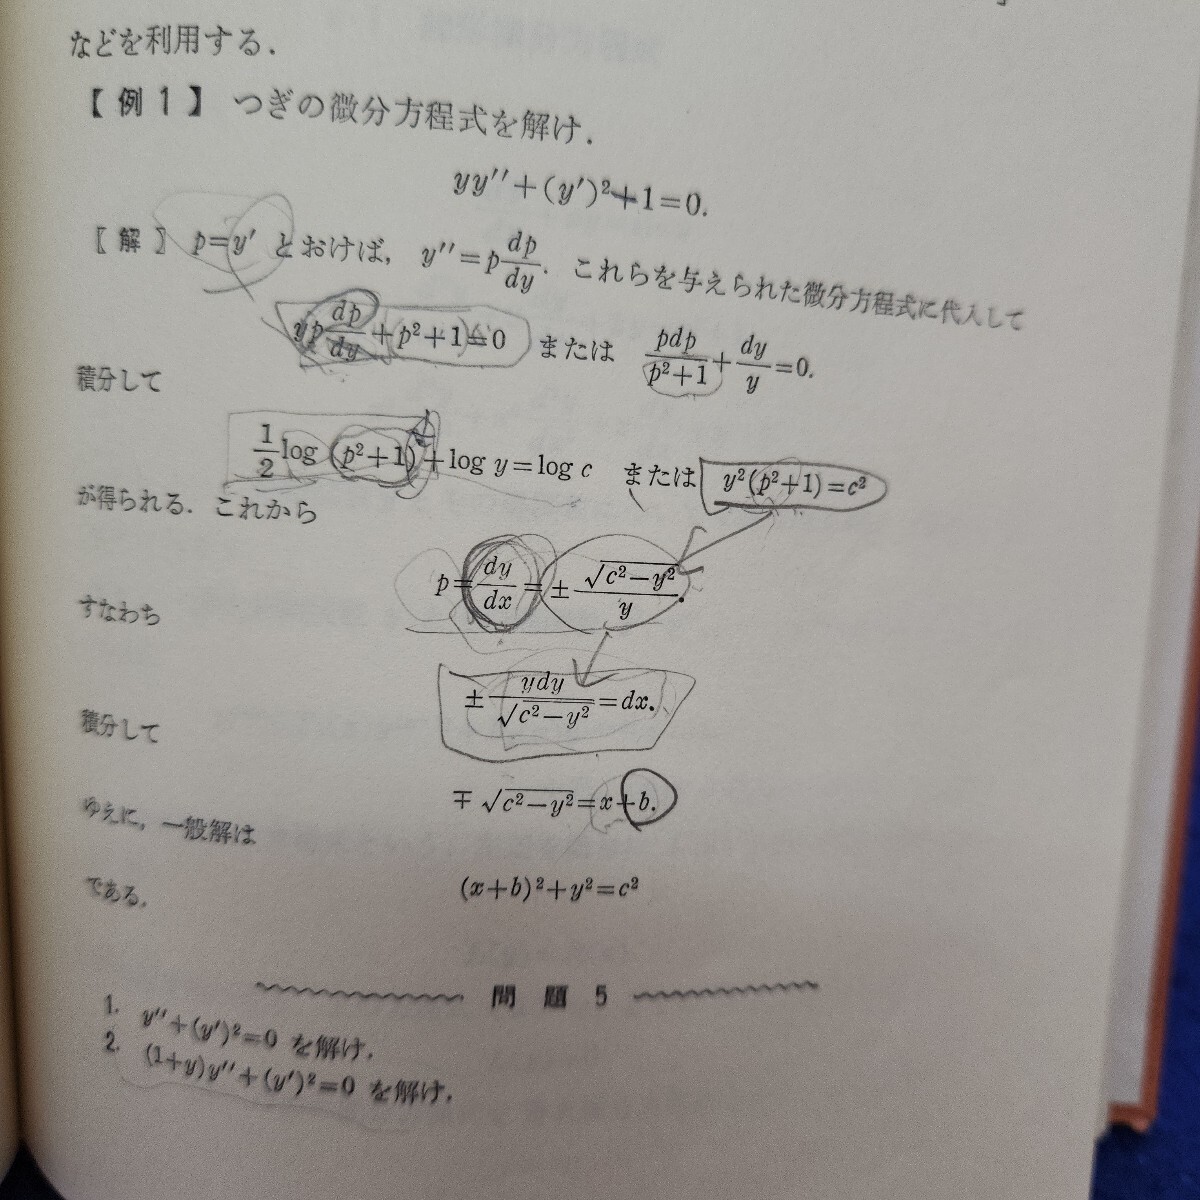 などを利用する.
【例1】 つぎの微分方程式を解け.
yy''+(y')²+1=0.
〖解〗 p=y' とおけば, y''=p dp/dy. これらを与えられた微分方程式に代入して
yp dp/dy+p²+1=0 または pdp/(p²+1)+dy/y=0.
積分して
1/2 log (p²+1)+log y=log c または y²(p²+1)=c²
が得られる. これから
p=dy/dx=±√(c²−y²)/y.
すなわち
±ydy/√(c²−y²)=dx.
積分して
∓√(c²−y²)=x+b.
ゆえに, 一般解は
(x+b)²+y²=c²
である.
問題 5
1. y''+(y')²=0 を解け.
2. (1+y)y''+(y')²=0 を解け.